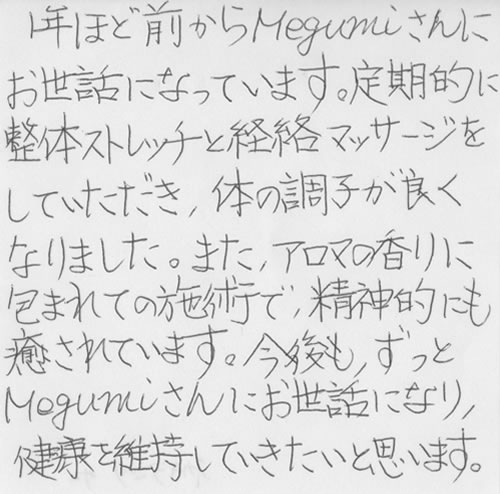 1年ほど前からMegumiさんに
お世話になっています。定期的に
整体ストレッチと経絡マッサージを
していただき、体の調子が良く
なりました。また、アロマの香りに
包まれての施術で、精神的にも
癒されています。今後も、ずっと
Megumiさんにお世話になり、
健康を維持していきたいと思います。